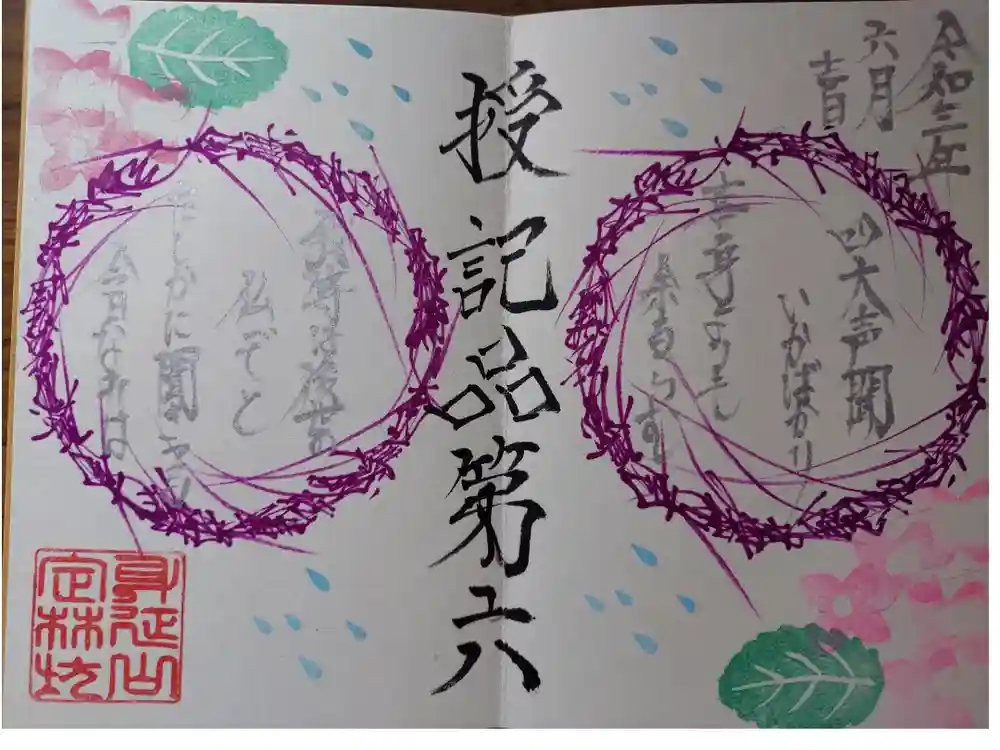 令和三年
六月
吉日
四大声聞
いかばかり
喜身よりも
余るらむ
授記品第六
我等は後世の
仏ぞと
しかに聞きつる
今日なれば
身延山
定林坊